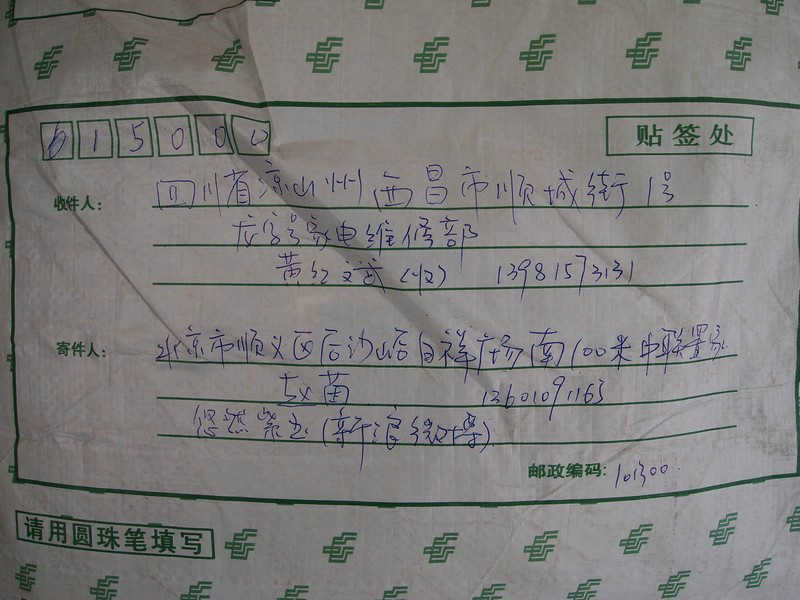 615000
贴签处
收件人: 四川省凉山州西昌市顺城街1号
龙字号家电维修部
黄红文武(收) 13981573131
寄件人: 北京市顺义区后沙峪吉祥广场南100米中联置家
赵苗 13601091163
悠然紫玉(新浪微博)
邮政编码: 101300
请用圆珠笔填写